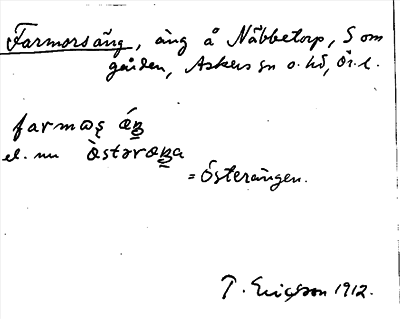 Farmorsäng, äng å Näbbetorp, S om
gården, Askers sn o. hd, Ör. l.
farmɷʂ ǽŋ
el. nu ò̈stəræŋa
= Österängen.
T. Ericsson 1912.